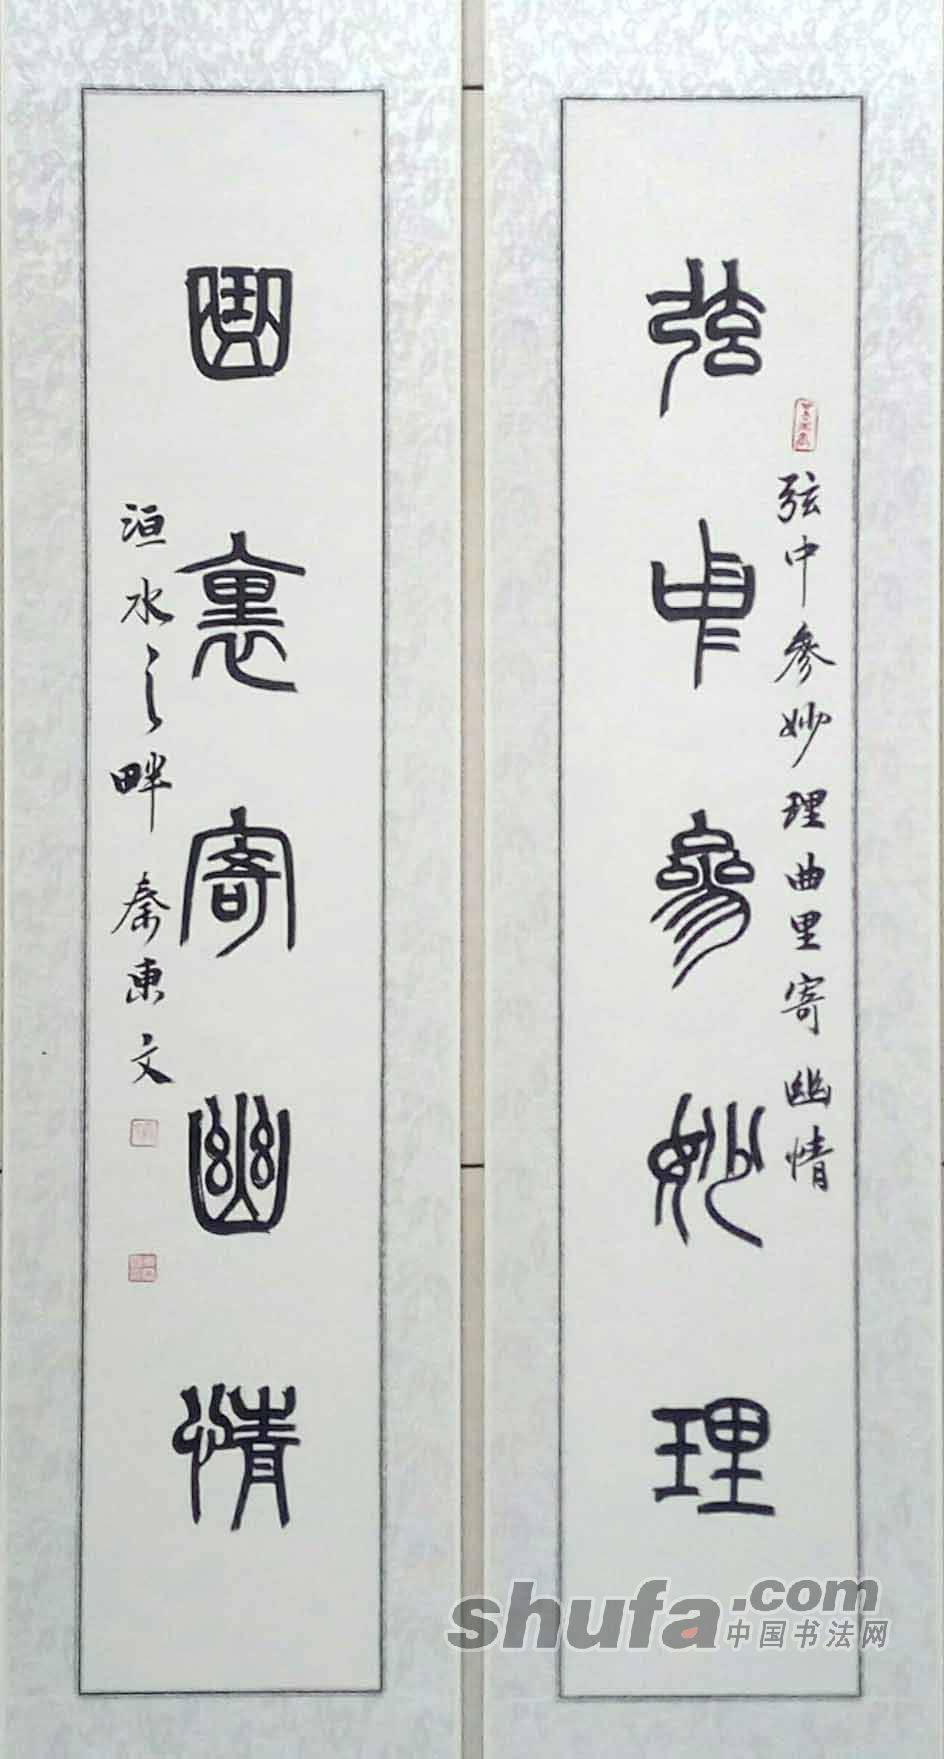 弦中參妙理
弦中參妙理曲里寄幽情
曲裏寄幽情
洹水之畔秦東文
shufa.com
中国书法网